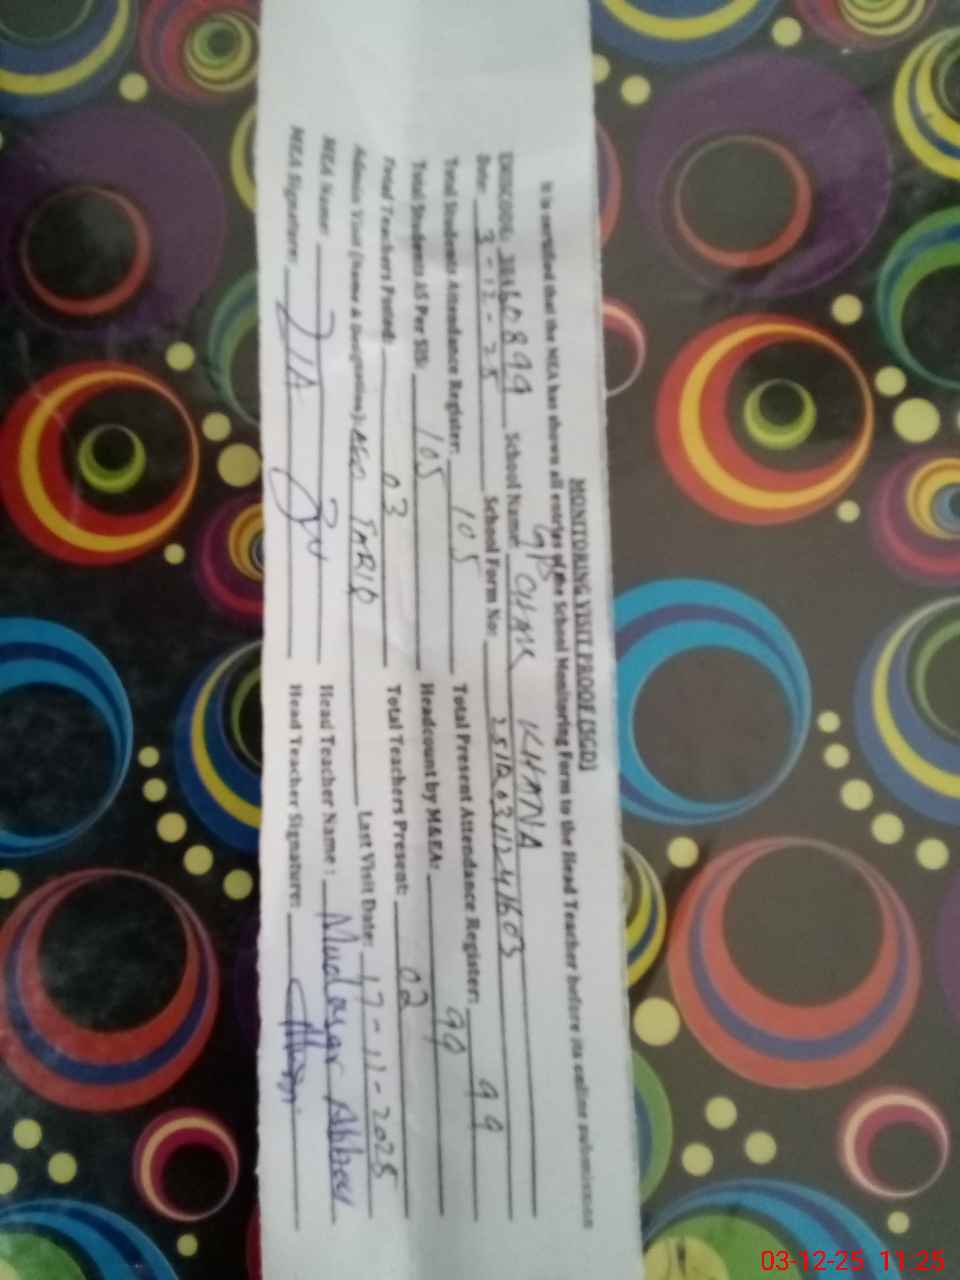 MONITORING VISIT PROOF (SGD)
It is certified that the MEA has shown all entries of the School Monitoring Form to the Head Teacher before its online submission
EMISCODE: School Name: GPS CHAK KHANA
Date: 3-12-25 School Form No:
Total Students Attendance Register: 105 Total Present Attendance Register: 99
Total Students AS Per SIS: 105 Headcount by M&EA: 99
Total Teachers Posted: 03 Total Teachers Present: 02
Admin Visit (Name & Designation): AEO TARIQ Last Visit Date: 17-11-2025
MEA Name: Head Teacher Name: Mudasar Abbas
MEA Signature: Head Teacher Signature:
03-12-25 11:25